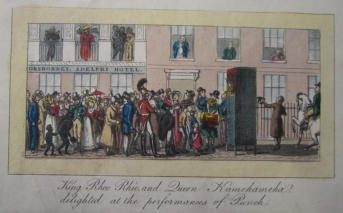 OSBORNES, ADELPHI HOTEL.
King Rheo Rhio, and Queen Kamehameha?
delighted at the performances of Punch.